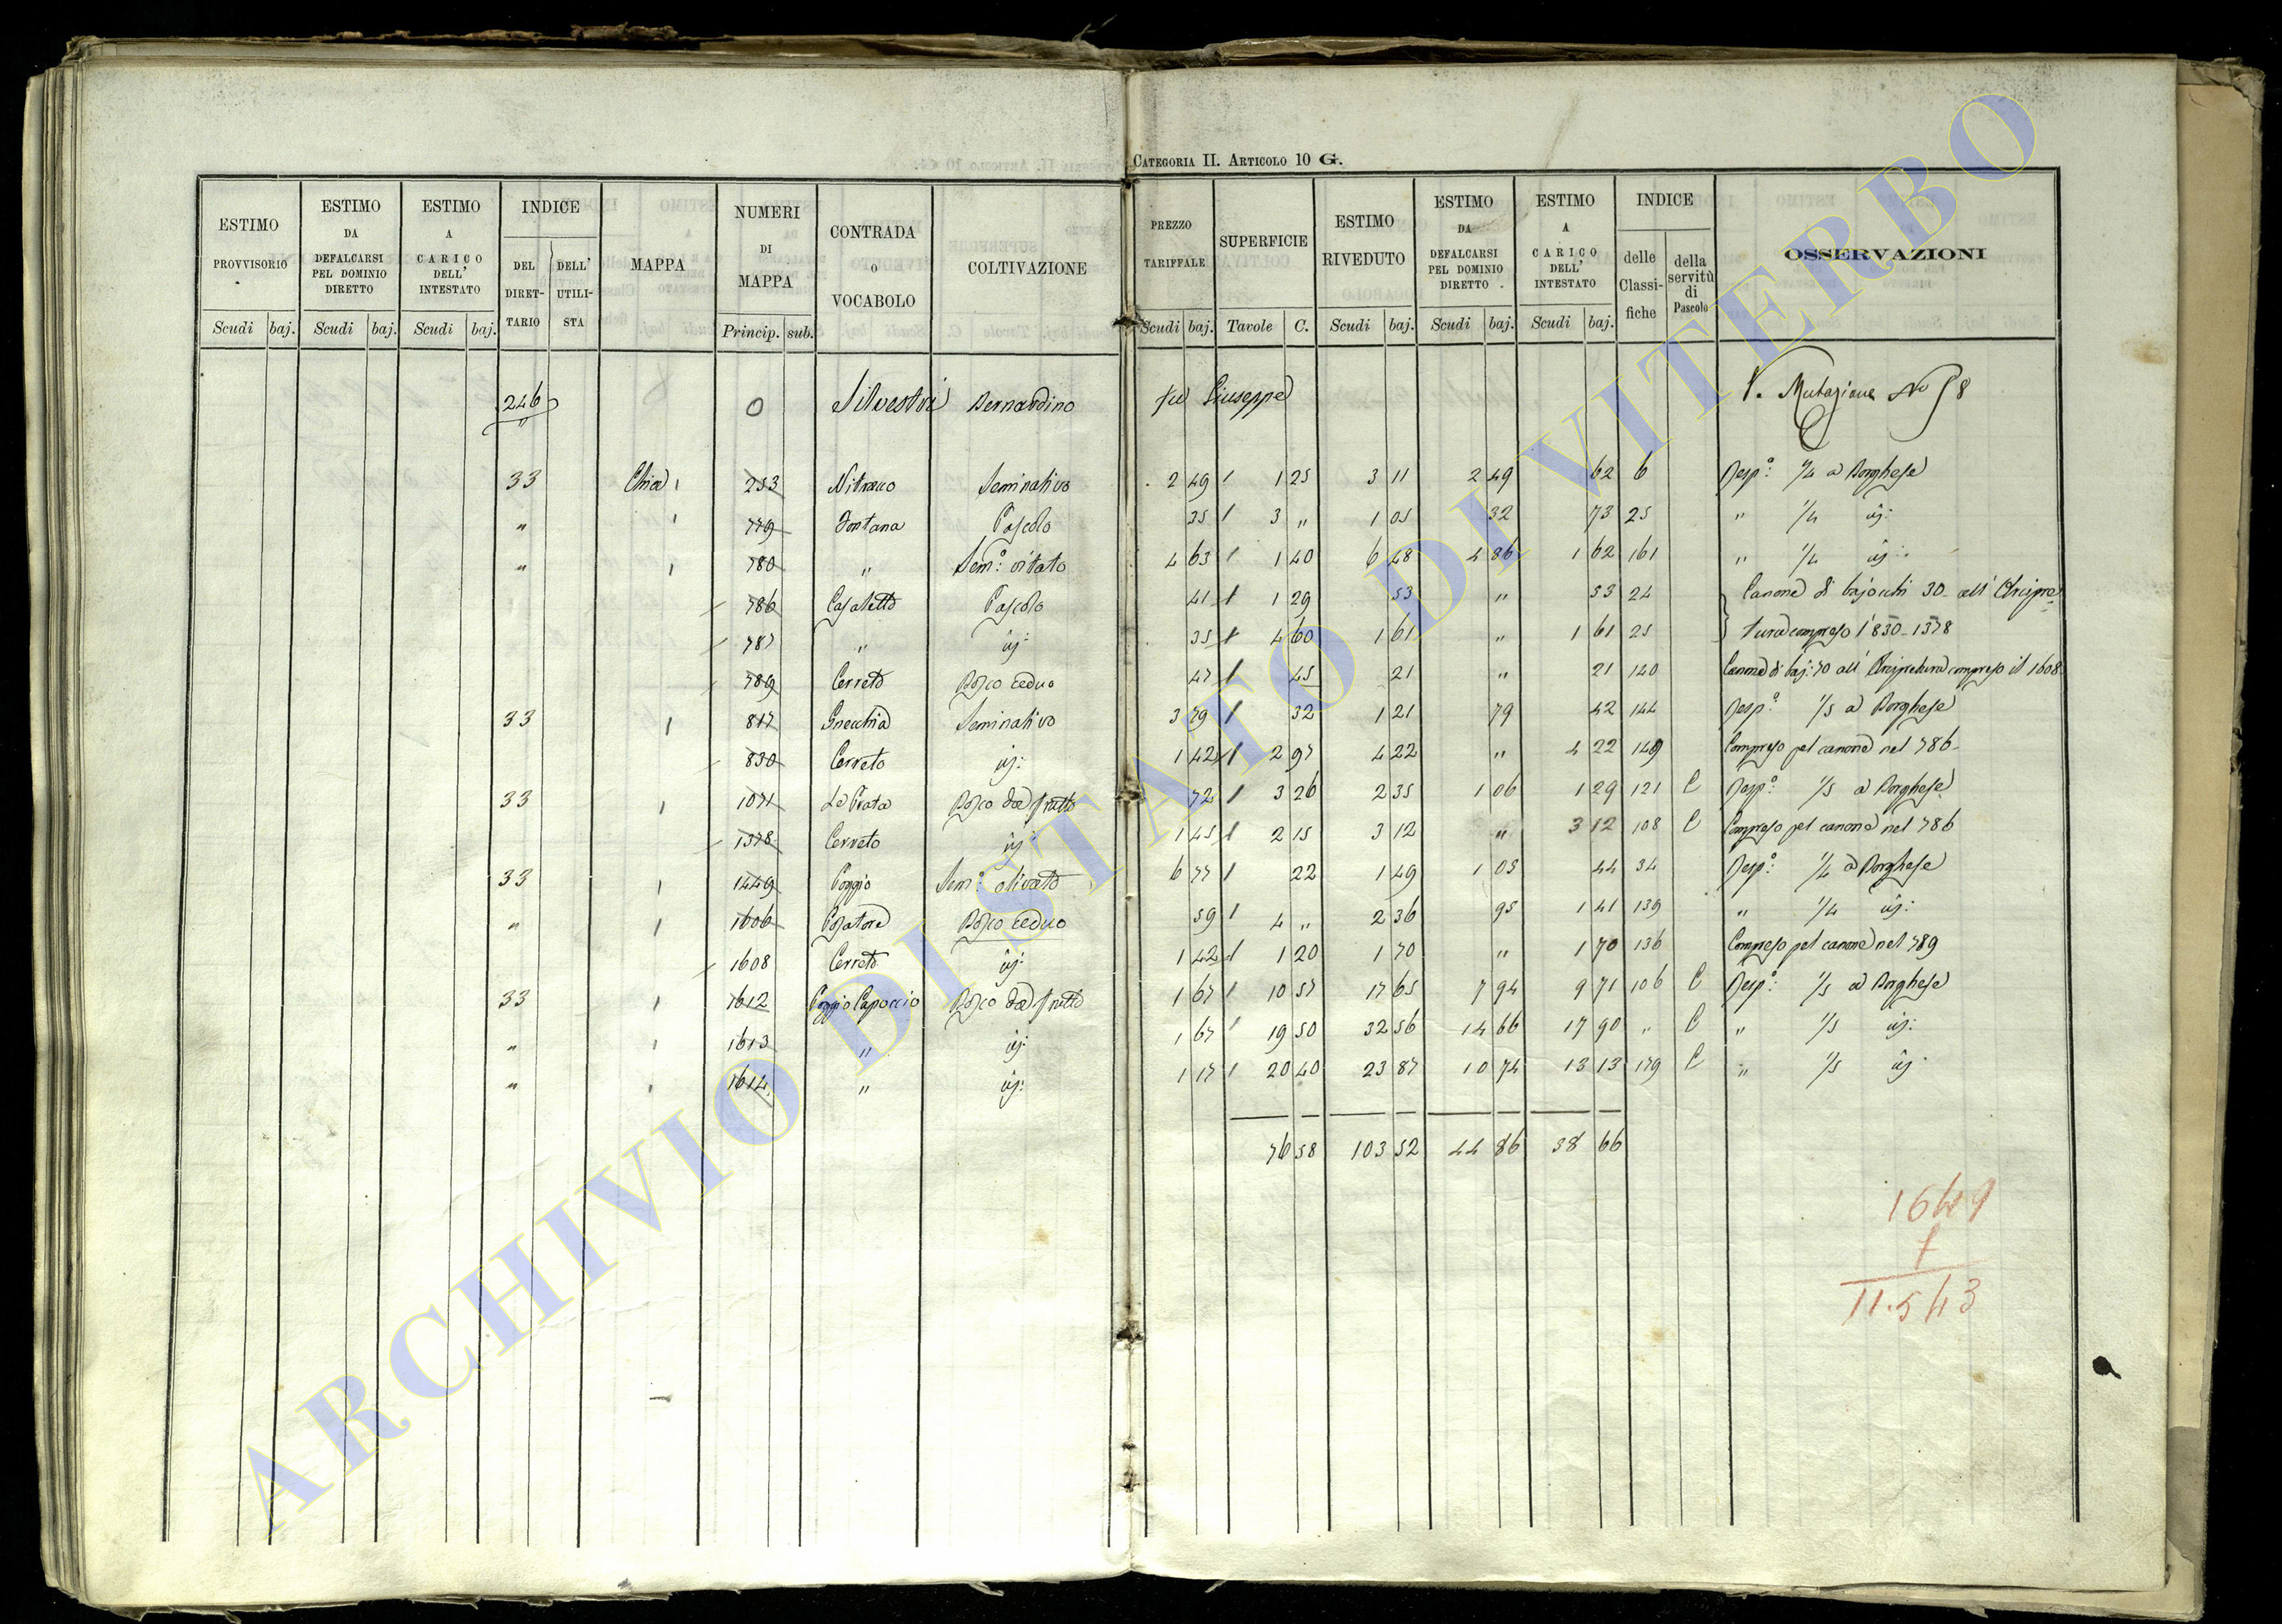 CATEGORIA II. ARTICOLO 10 G.
ESTIMO PROVVISORIO Scudi baj. ESTIMO DA DEFALCARSI PEL DOMINIO DIRETTO Scudi baj. ESTIMO A CARICO DELL' INTESTATO Scudi baj. INDICE DEL DIRETTARIO DELL' UTILISTA MAPPA NUMERI DI MAPPA Princip. sub. CONTRADA O VOCABOLO COLTIVAZIONE PREZZO TARIFFALE Scudi baj. SUPERFICIE Tavole C. ESTIMO RIVEDUTO Scudi baj. ESTIMO DA DEFALCARSI PEL DOMINIO DIRETTO Scudi baj. ESTIMO A CARICO DELL' INTESTATO Scudi baj. INDICE delle Classifiche della servitù di Pascolo OSSERVAZIONI
246 0 Silvestri Bernardino fu Giuseppe V. Mutazione No 58
33 Chia 253 Seminativo 2 49 1 25 3 11 2 49 62 6 Resp: 4/4 a Borghese
" 779 Fontana Pascolo 35 3 " 1 05 32 73 25 " 1/4 id:
" 780 " Sem: vitato 4 63 1 40 6 48 4 86 1 62 161 " 1/4 id:
786 Casaletto Pascolo 41 1 29 53 " 53 24 Canone di bajocchi 30 all' Arcipre
787 " id: 35 4 60 1 61 " 1 61 25 tura compreso l' 830-1378
789 Cerreto Bosco ceduo 47 45 21 " 21 140 Canone di baj: 70 all' Arcipretura compreso il 1608
33 817 Seminativo 3 79 32 1 21 79 42 144 Resp: 1/5 a Borghese
830 Cerreto id: 1 42 2 97 4 22 " 4 22 149 Compreso pel canone nel 786
33 1071 La Prata Bosco da frutto 72 3 26 2 35 1 06 1 29 121 C Resp: 1/5 a Borghese
1378 Cerreto id 1 45 2 15 3 12 " 3 12 108 C Compreso pel canone nel 786
33 1449 Poggio Sem: olivato 6 77 22 1 49 1 05 44 34 Resp: 1/4 a Borghese
" 1606 Bosco ceduo 59 4 " 2 36 95 1 41 139 " 1/4 id:
1608 Cerreto id: 1 42 1 20 1 70 " 1 70 136 Compreso pel canone nel 789
33 1612 Poggio Capoccio Bosco da frutto 1 67 10 57 17 65 7 94 9 71 106 C Resp: 1/5 a Borghese
" 1613 " id: 1 67 19 50 32 56 14 66 17 90 " C " 1/5 id:
" 1614 " id: 1 17 20 40 23 87 10 74 13 13 179 C " 1/5 id
76 58 103 52 44 86 58 66
1649
7
11.543
ARCHIVIO DI STATO DI VITERBO